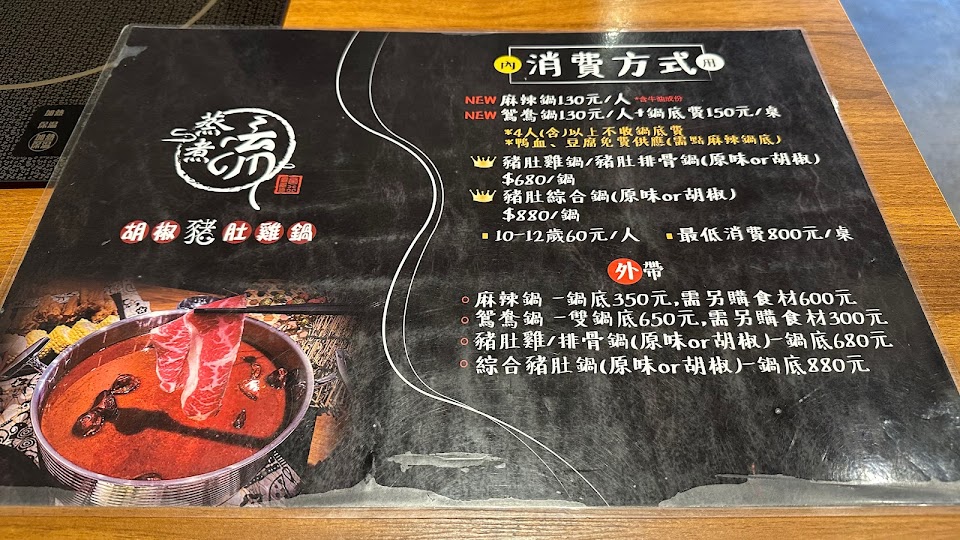 蒸
煮
流
胡椒豬肚雞鍋
內 消費方式 用
NEW 麻辣鍋130元/人 *含牛油成份
NEW 鴛鴦鍋130元/人+鍋底費150元/桌
*4人(含)以上不收鍋底費
*鴨血、豆腐免費供應(需點麻辣鍋底)
豬肚雞鍋/豬肚排骨鍋(原味or胡椒)
$680/鍋
豬肚綜合鍋(原味or胡椒)
$880/鍋
10-12歲60元/人 最低消費800元/桌
外帶
麻辣鍋 -鍋底350元,需另購食材600元
鴛鴦鍋 -雙鍋底650元,需另購食材300元
豬肚雞/排骨鍋(原味or胡椒)-鍋底680元
綜合豬肚鍋(原味or胡椒)-鍋底880元